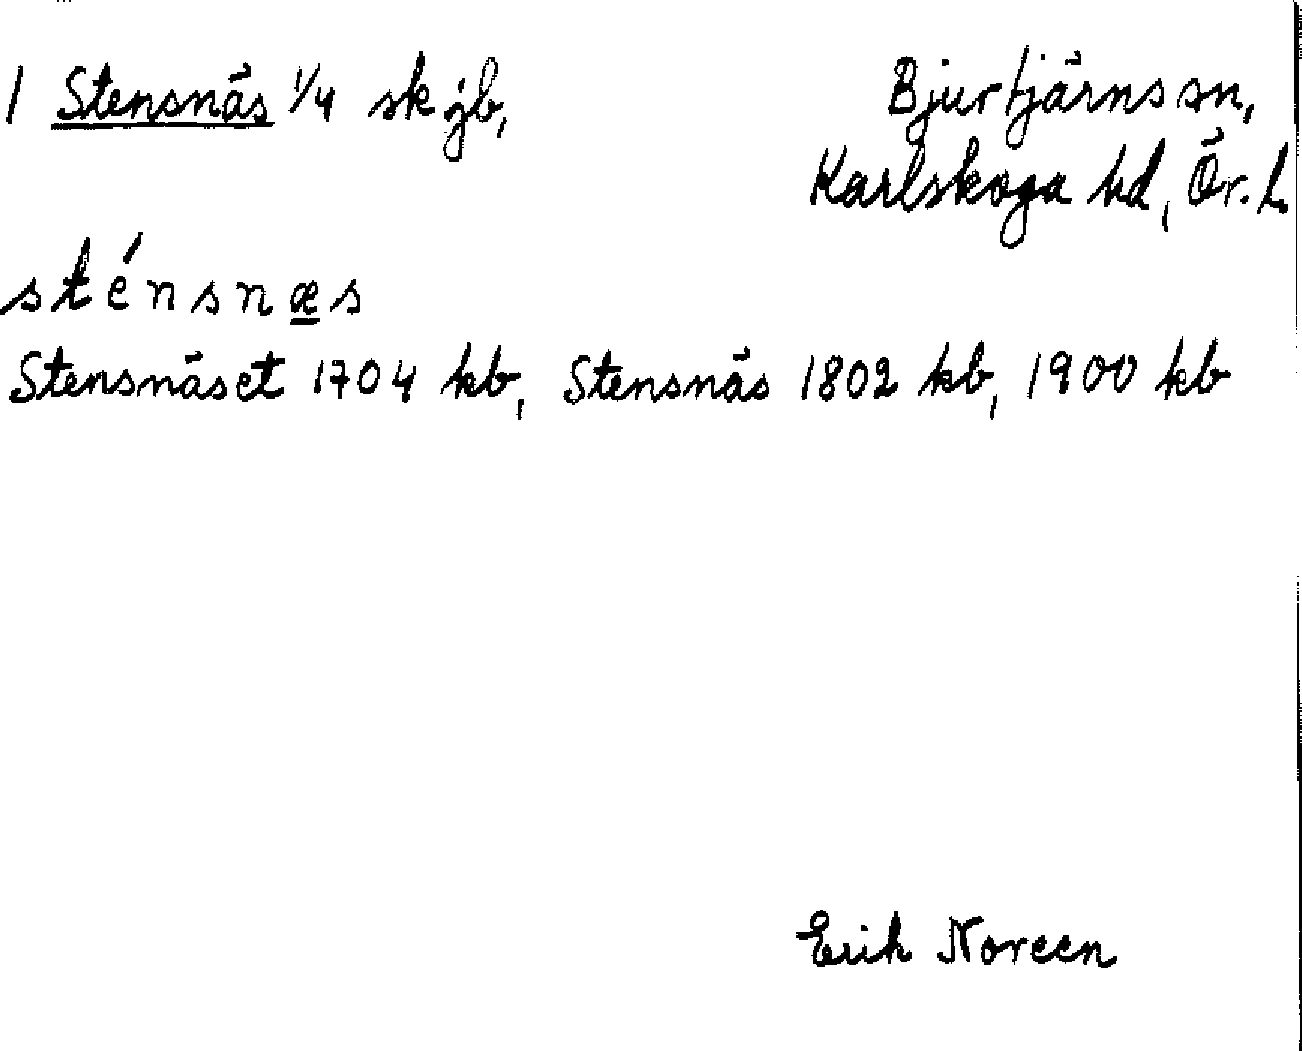 1 Stensnäs 1/4 sk jb, Bjurtjärns sn,
Karlskoga hd, Ör. L.
sténsnæs
Stensnäset 1704 kb, Stensnäs 1802 kb, 1900 kb
Erik Noreen